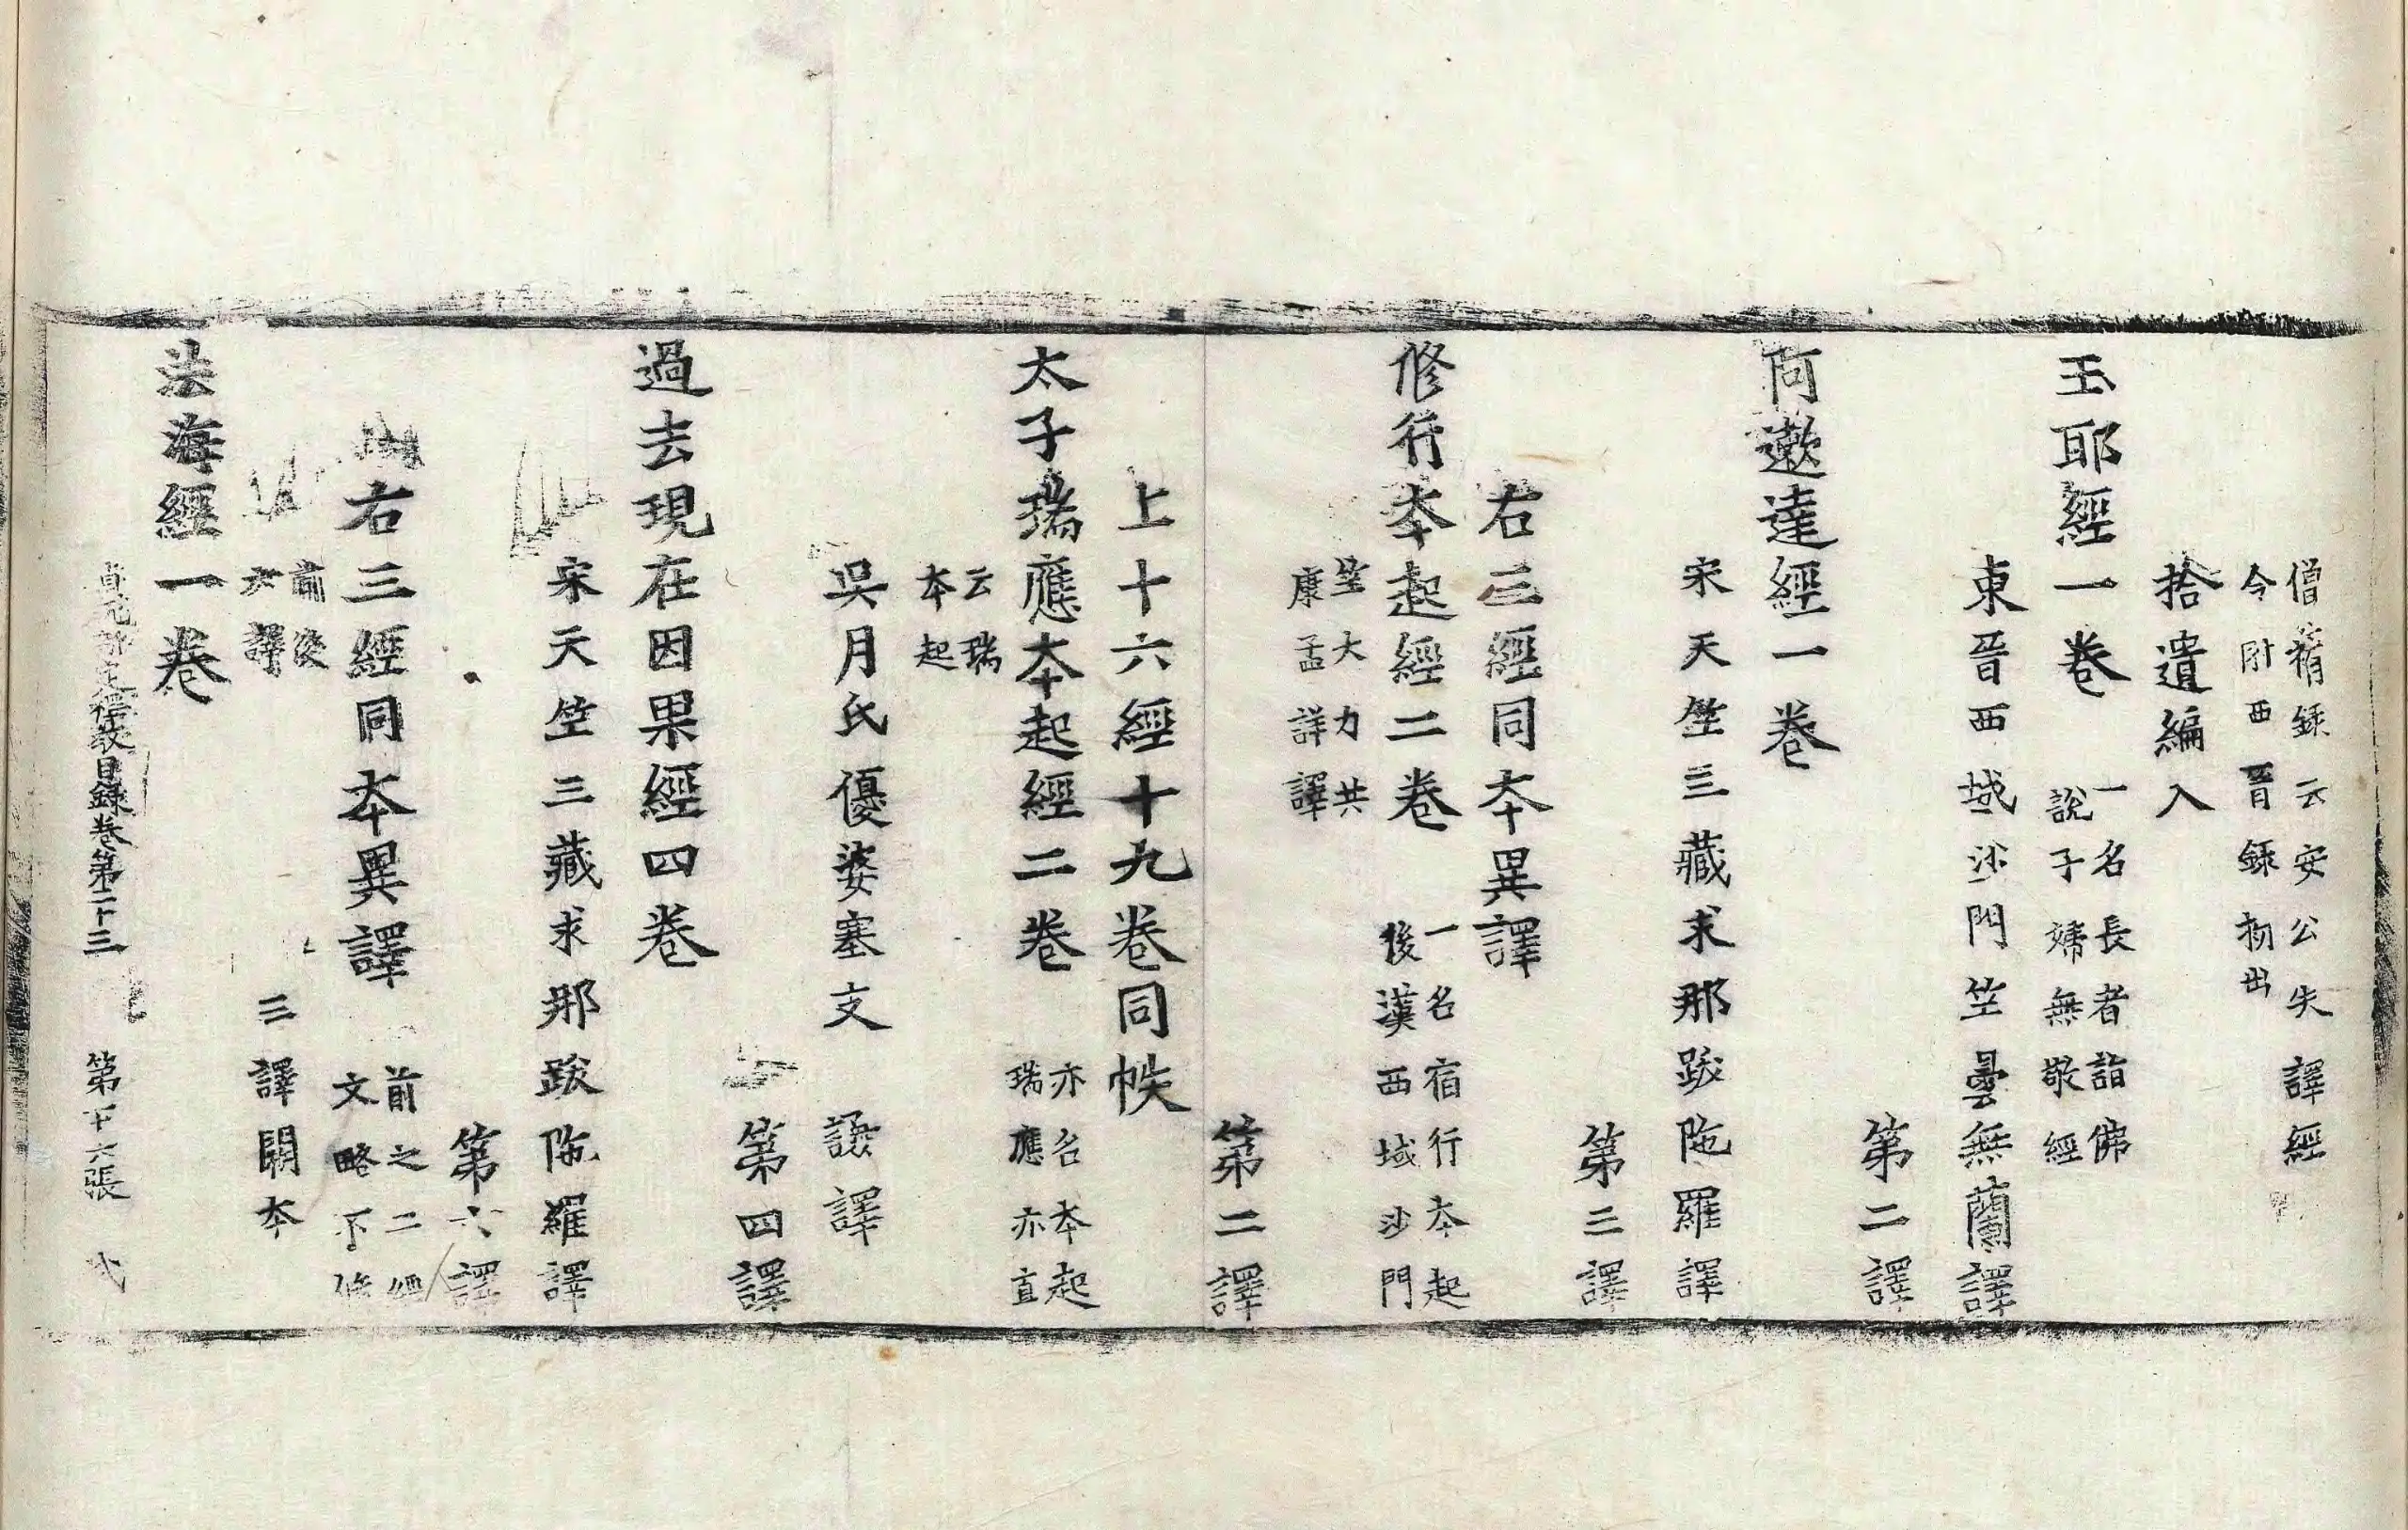 僧祐録云安公失譯經
今附西晉録
拾遺編入
玉耶經一卷 一名長者詣佛
說子婦無敬經
東晉西域沙門竺曇無蘭譯
第二譯
阿遬達經一卷
宋天竺三藏求那跋陁羅譯
第三譯
右三經同本異譯
修行本起經二卷 一名宿行本起
後漢西域沙門
竺大力共
康孟詳譯
第二譯
上十六經十九卷同帙
太子瑞應本起經二卷 亦名本起
瑞應亦直
云瑞
本起
吳月氏優婆塞支謙譯
第四譯
過去現在因果經四卷
宋天竺三藏求那跋陁羅譯
第六譯
右三經同本異譯 前之二經
文略不俻
前後
六譯
三譯闕本
法海經一卷
貞元新定釋教目録卷第二十三 第十六張